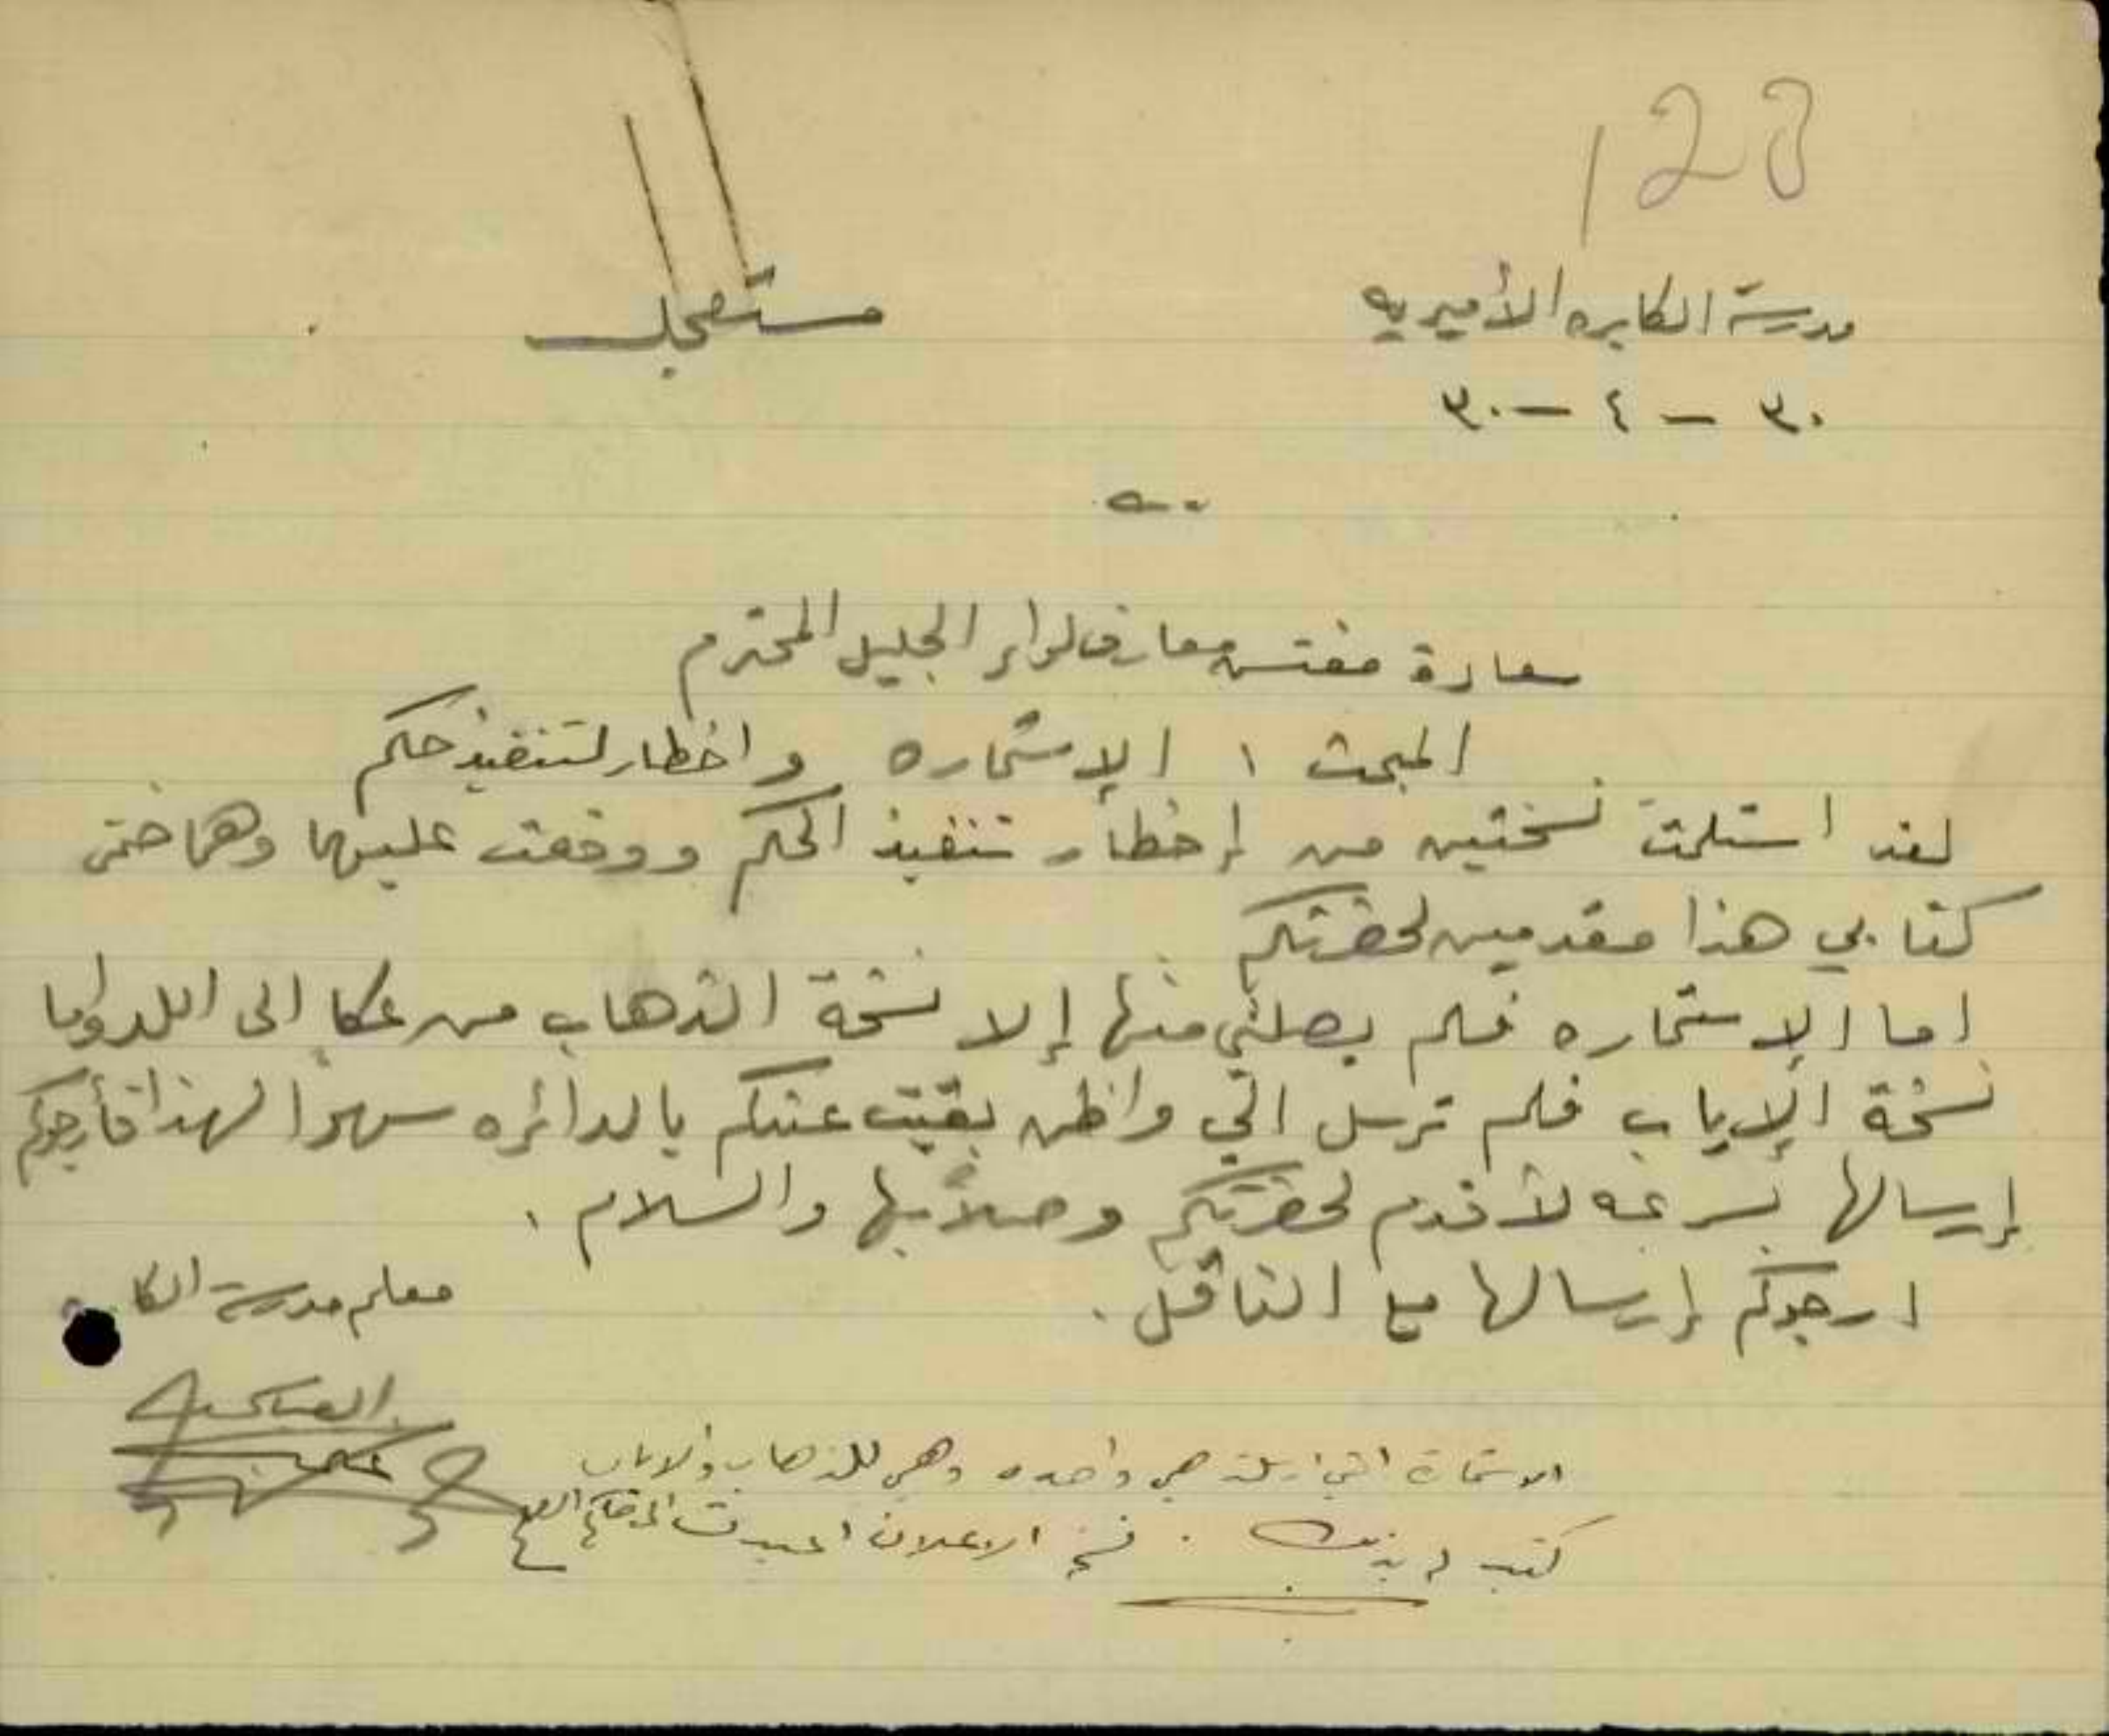 128
مدرسة الكابره الأميريه
مستعجل
٣٠ - ٤ - ٣٠
سعادة مفتش معارف لواء الجليل المحترم
المبحث ١ الإستماره واخطار لتنفيذ حكم
لقد استلمت نسختين من إخطار تنفيذ الحكم ووقعت عليها وهما ضمن
كتابي هذا مقدمين لحضرتكم
اما الإستماره فلم يصلني منها إلا نسخة الذهاب من عكا الى اللد واما
نسخة الإياب فلم ترسل الي واظن بقيت عندكم بالدائره سهوا لهذا فأرجوكم
إرسالها بسرعه لأقدم لحضرتكم وصلا بها والسلام .
ارجوكم إرسالها مع الناقل .
معلم مدرسة الكا
الاستمارة التي ارسلت هي واحده وهي للذهاب والاياب
كتب له بذلك . نسخ الاعلان اعيدت الى